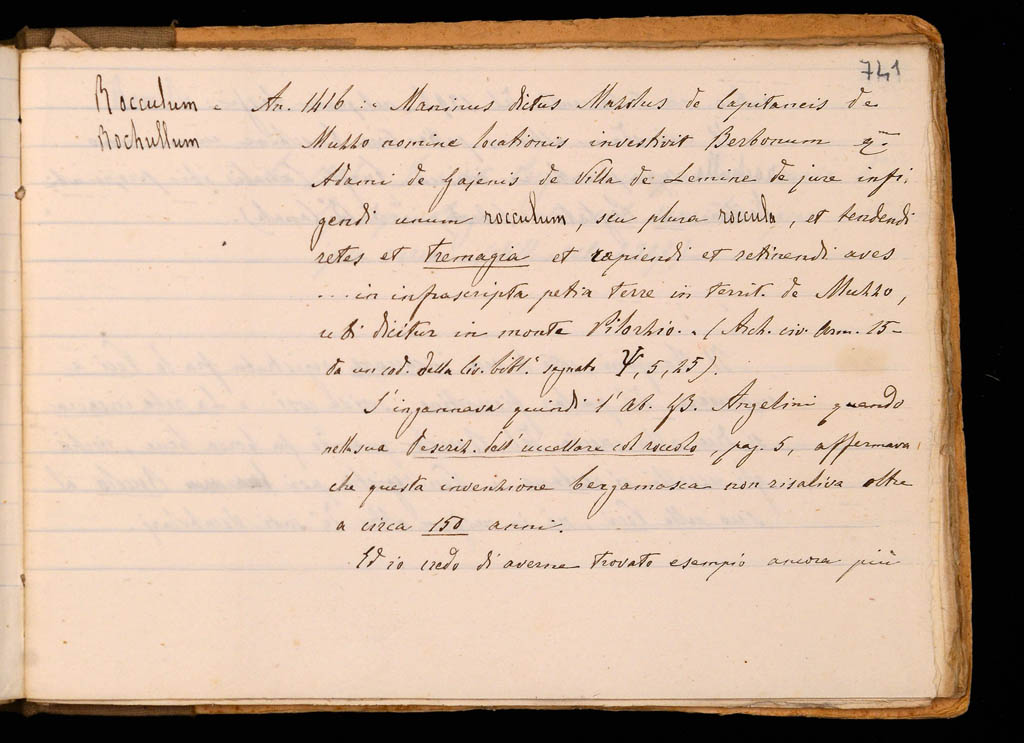 741
Rocculum = An. 1416 :- Maninus dictus Mazolus de Capitaneis de
Rochullum Muzzo nomine locationis investivit Berbonum q.
Adami de Gajenis de Villa de Lemine de jure infi-
gendi unum rocculum, seu plura roccula, et tendendi
retes et tremagia et capiendi et retinendi aves
... in infrascripta petia terre in territ. de Muzzo,
ubi dicitur in monte Pilorzio. - (Arch. civ. Arm. 15-
da un cod. della Civ. bibl.ª segnato Ψ, 5, 25).
S'ingannava quindi l'Ab. Angelini quando
nella sua Descriz. dell'uccellare col roccolo, pag. 5, affermava
che questa invenzione bergamasca non risaliva oltre
a circa 150 anni.
Ed io credo di averne trovato esempio ancora più